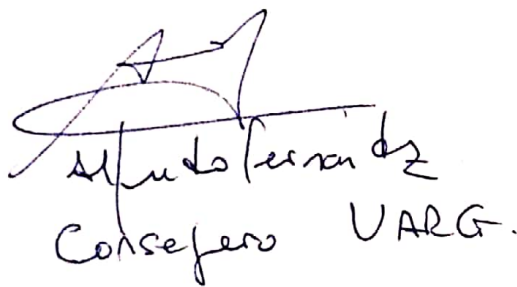 Alfredo Fernández
Consejero UARG.